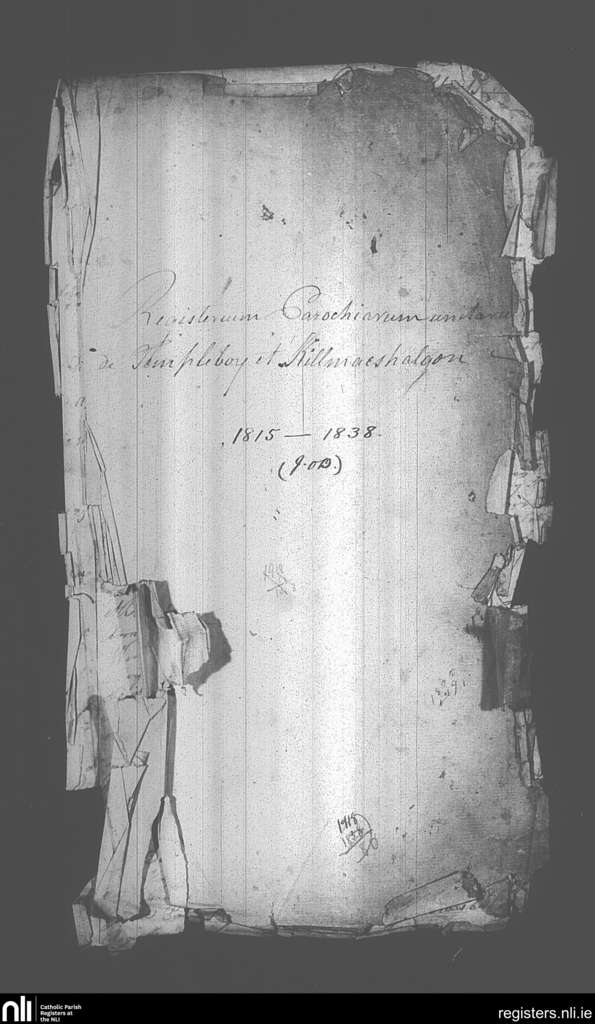 Registerum Parochiarum unitarum
de Templeboy et Killmacshalgan
1815 — 1838.
(J.OD.)
1918
1838
80
nli
Catholic Parish
Registers at
the NLI
registers.nli.ie